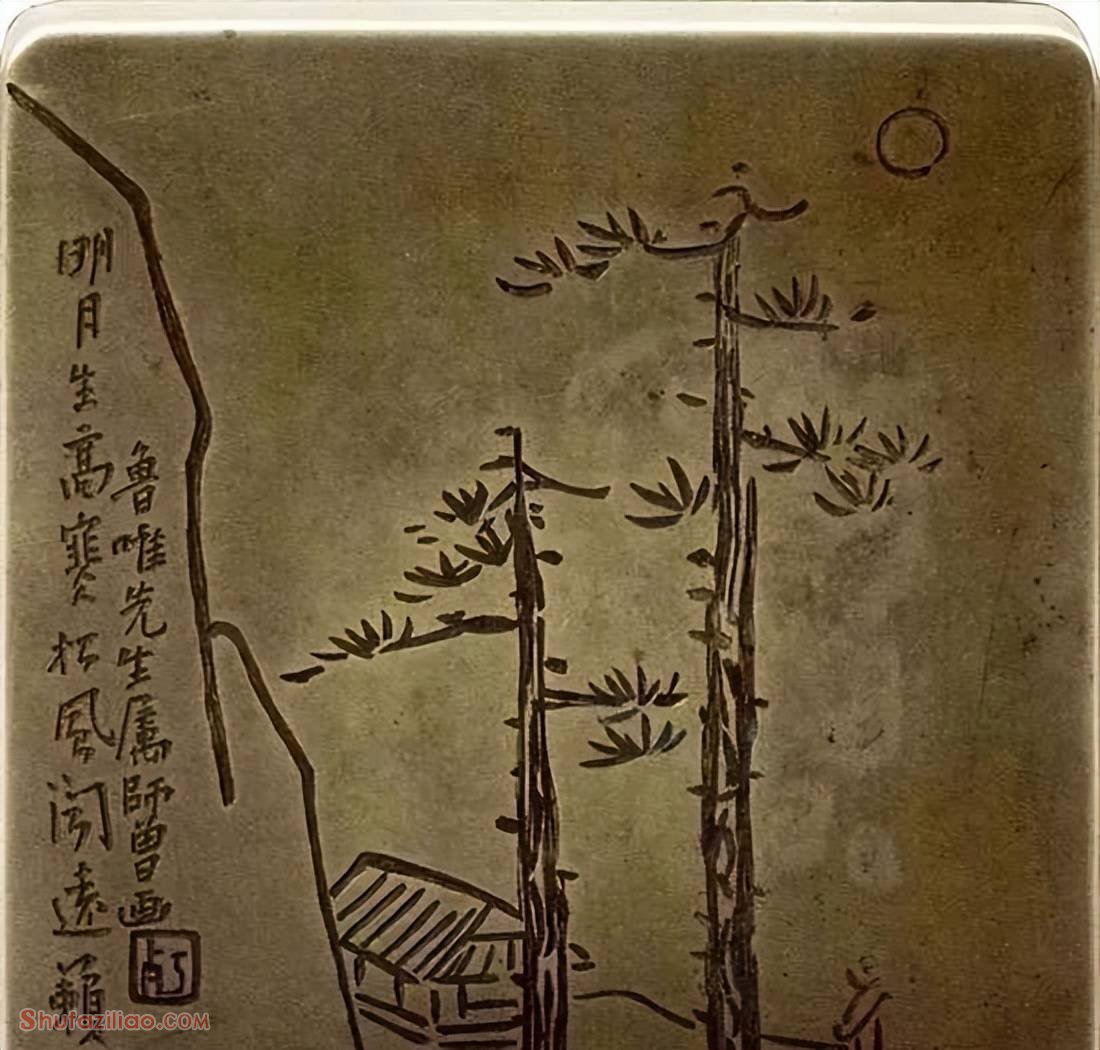 明月生高松風聞遠籟
魯唯先生属師曾画
Shufaziliao.com